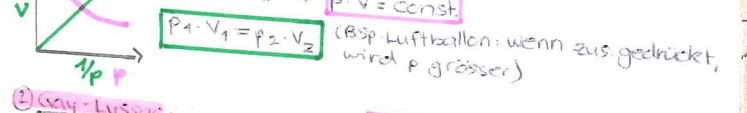 p · V = const.
V
p₁ · V₁ = p₂ · V₂
(Bsp. Luftballon: wenn zus. gedrückt,
wird p grösser)
1/p p
② Gay-Lussac